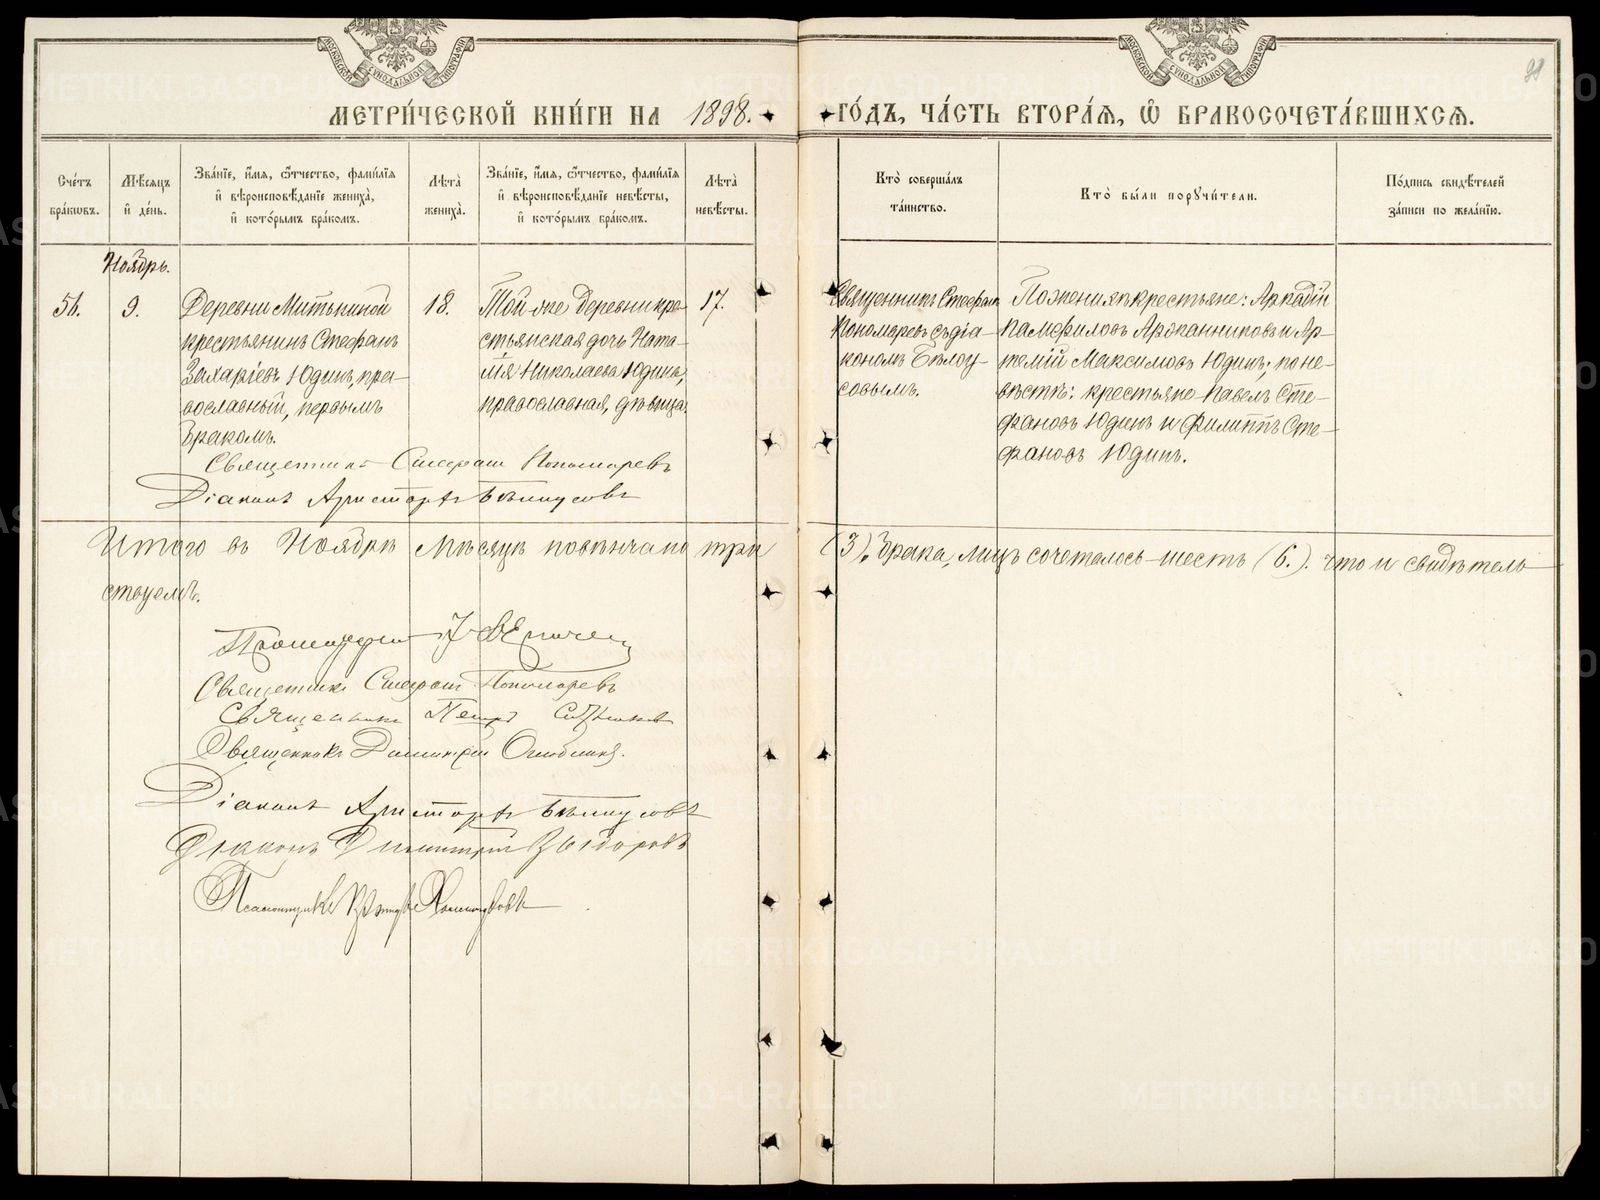 МОСКОВСКОЙ СѴНОДАЛЬНОЙ ТИПОГРАФІИ
МОСКОВСКОЙ СѴНОДАЛЬНОЙ ТИПОГРАФІИ
99
МЕТРИ́ЧЕСКОЙ КНИ́ГИ НА 1898. ГО́ДЪ, ЧА́СТЬ ВТОРА́Ѧ, Ѽ БРАКОСОЧЕТА́ВШИХСѦ.
Сче́тъ
бра́ковъ.
Мѣ́сяцъ
и҆ де́нь.
Зва́нїе, и҆́мя, ѻ҆́тчество, фами́лїя
и҆ вѣроисповѣ́данїе жениха̀,
и҆ кото́рымъ бра́комъ.
Лѣта̀
жениха̀.
Зва́нїе, и҆́мя, ѻ҆́тчество, фами́лїя
и҆ вѣроисповѣ́данїе невѣ́сты,
и҆ кото́рымъ бра́комъ.
Лѣта̀
невѣ́сты.
Кто̀ соверша́лъ
та́инство.
Кто̀ бы́ли поручи́тели.
По́дпись свидѣ́телей
за́писи по жела́нїю.
Ноябрь.
56.
9.
Деревни Митькиной
крестьянинъ Стефанъ
Захаріевъ Юдинъ, пра-
вославный, первымъ
бракомъ.
18.
Той-же деревни кре-
стьянская дочь Ната-
лія Николаева Юдина,
православная, дѣвица.
17.
Священникъ Стефанъ
Пономаревъ съ діа-
кономъ Бѣлоу-
совымъ.
По женихѣ крестьяне: Аркадій
Памфиловъ Аржанниковъ и Ар-
темій Максимовъ Юдинъ; по не-
вѣстѣ: крестьяне Павелъ Сте-
фановъ Юдинъ и Филиппъ Сте-
фановъ Юдинъ.
Священникъ Стефанъ Пономаревъ
Діаконъ Аристархъ Бѣлоусовъ
Итого въ Ноябрѣ мѣсяцѣ повѣнчано три (3). брака, лицъ сочеталось шесть (6.). что и свидѣтель-
ствуемъ.
Священникъ Стефанъ Пономаревъ
Священникъ Петръ
Священникъ Димитрій
Діаконъ Аристархъ Бѣлоусовъ
Діаконъ Димитрій Выборовъ
Псаломщикъ
METRIKI.GASO-URAL.RU